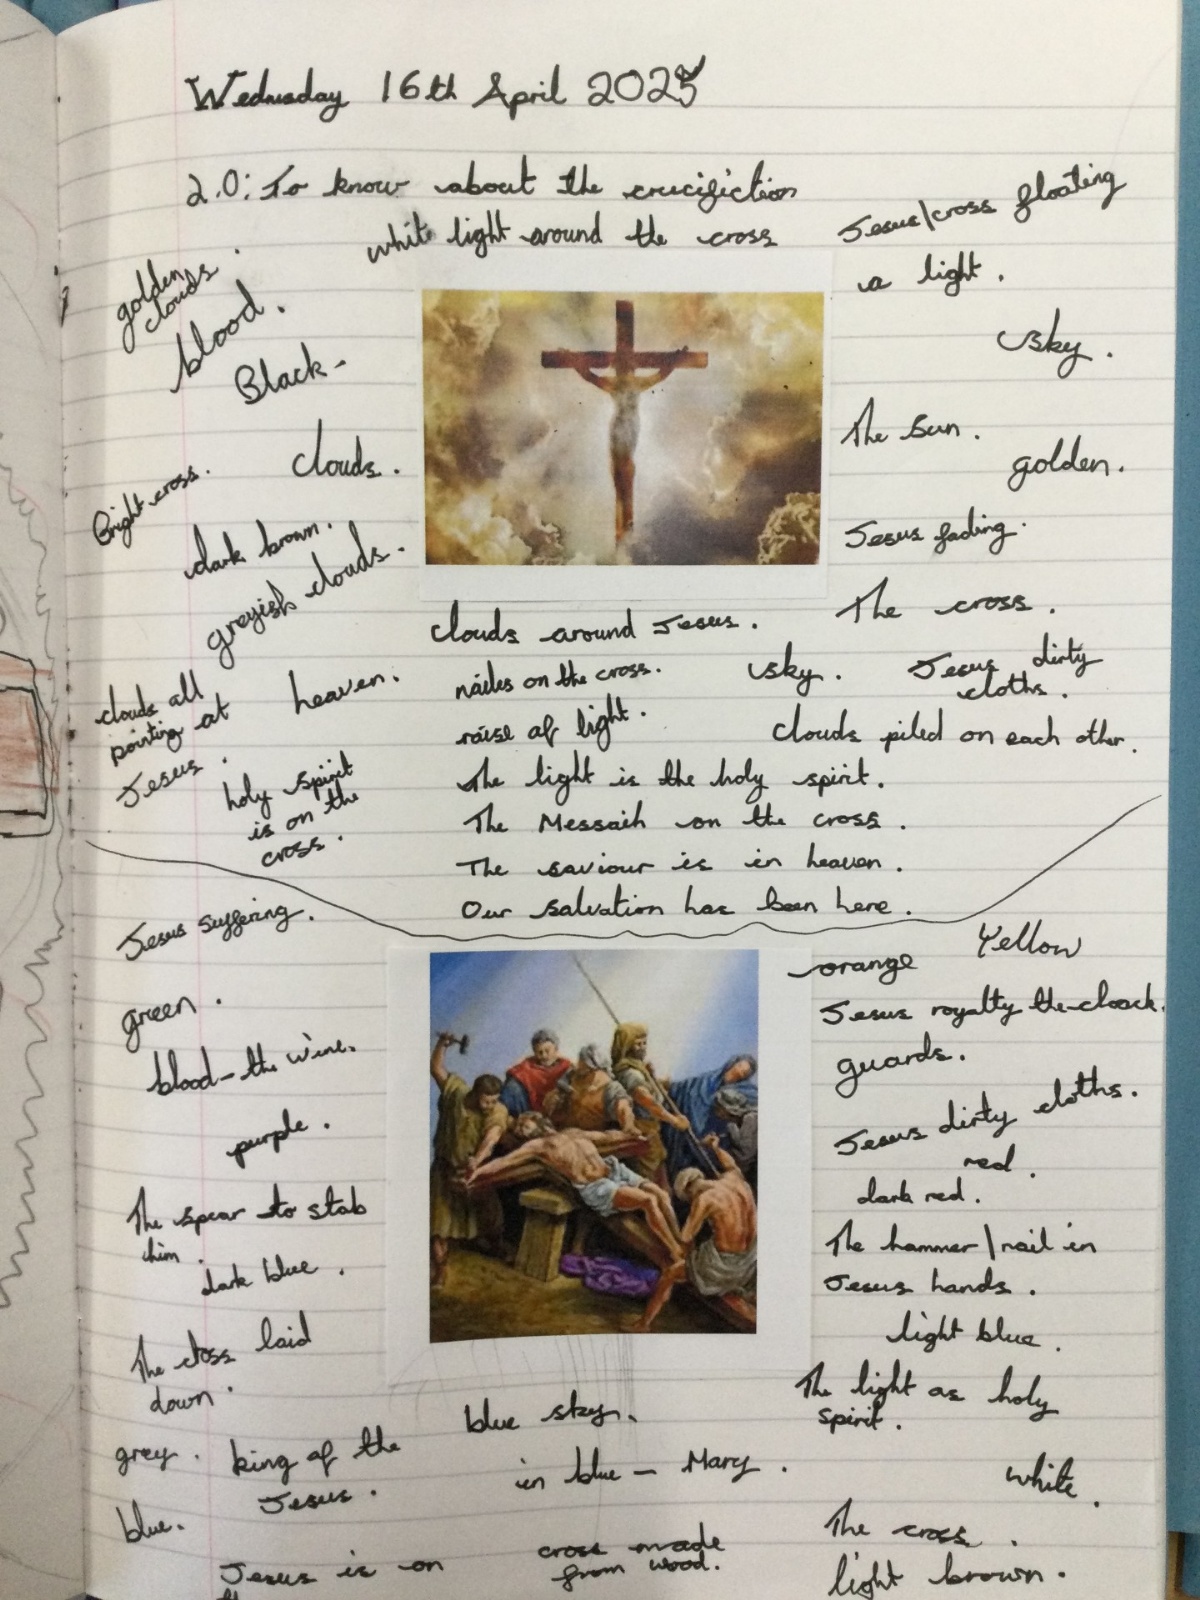 Wednesday 16th April 2025
2.O: To know about the crucifiction
white light around the cross
Jesus/cross floating
a light.
golden
clouds.
blood.
Black-
sky.
The sun.
golden.
clouds.
Bright cross.
dark brown.
Jesus fading.
greyish clouds.
The cross.
clouds around Jesus.
nailes on the cross.
sky.
Jesus dirty
cloths.
clouds all
pointing at
Jesus.
heaven.
raise of light.
clouds piled on each other.
holy spirit
is on the
cross.
The light is the holy spirit.
The Messaih on the cross.
The saviour is in heaven.
Our salvation has been here.
Jesus suffering.
orange
Yellow
green.
Jesus royalty the cloack.
blood- the wine.
guards.
purple.
Jesus dirty cloths.
red.
dark red.
The spear to stab
him.
dark blue.
The hammer/nail in
Jesus hands.
light blue.
The cross laid
down.
The light as holy
spirit.
blue sky.
grey.
king of the
Jesus.
in blue - Mary.
white.
blue.
The cross.
cross made
from wood.
Jesus is on
light brown.